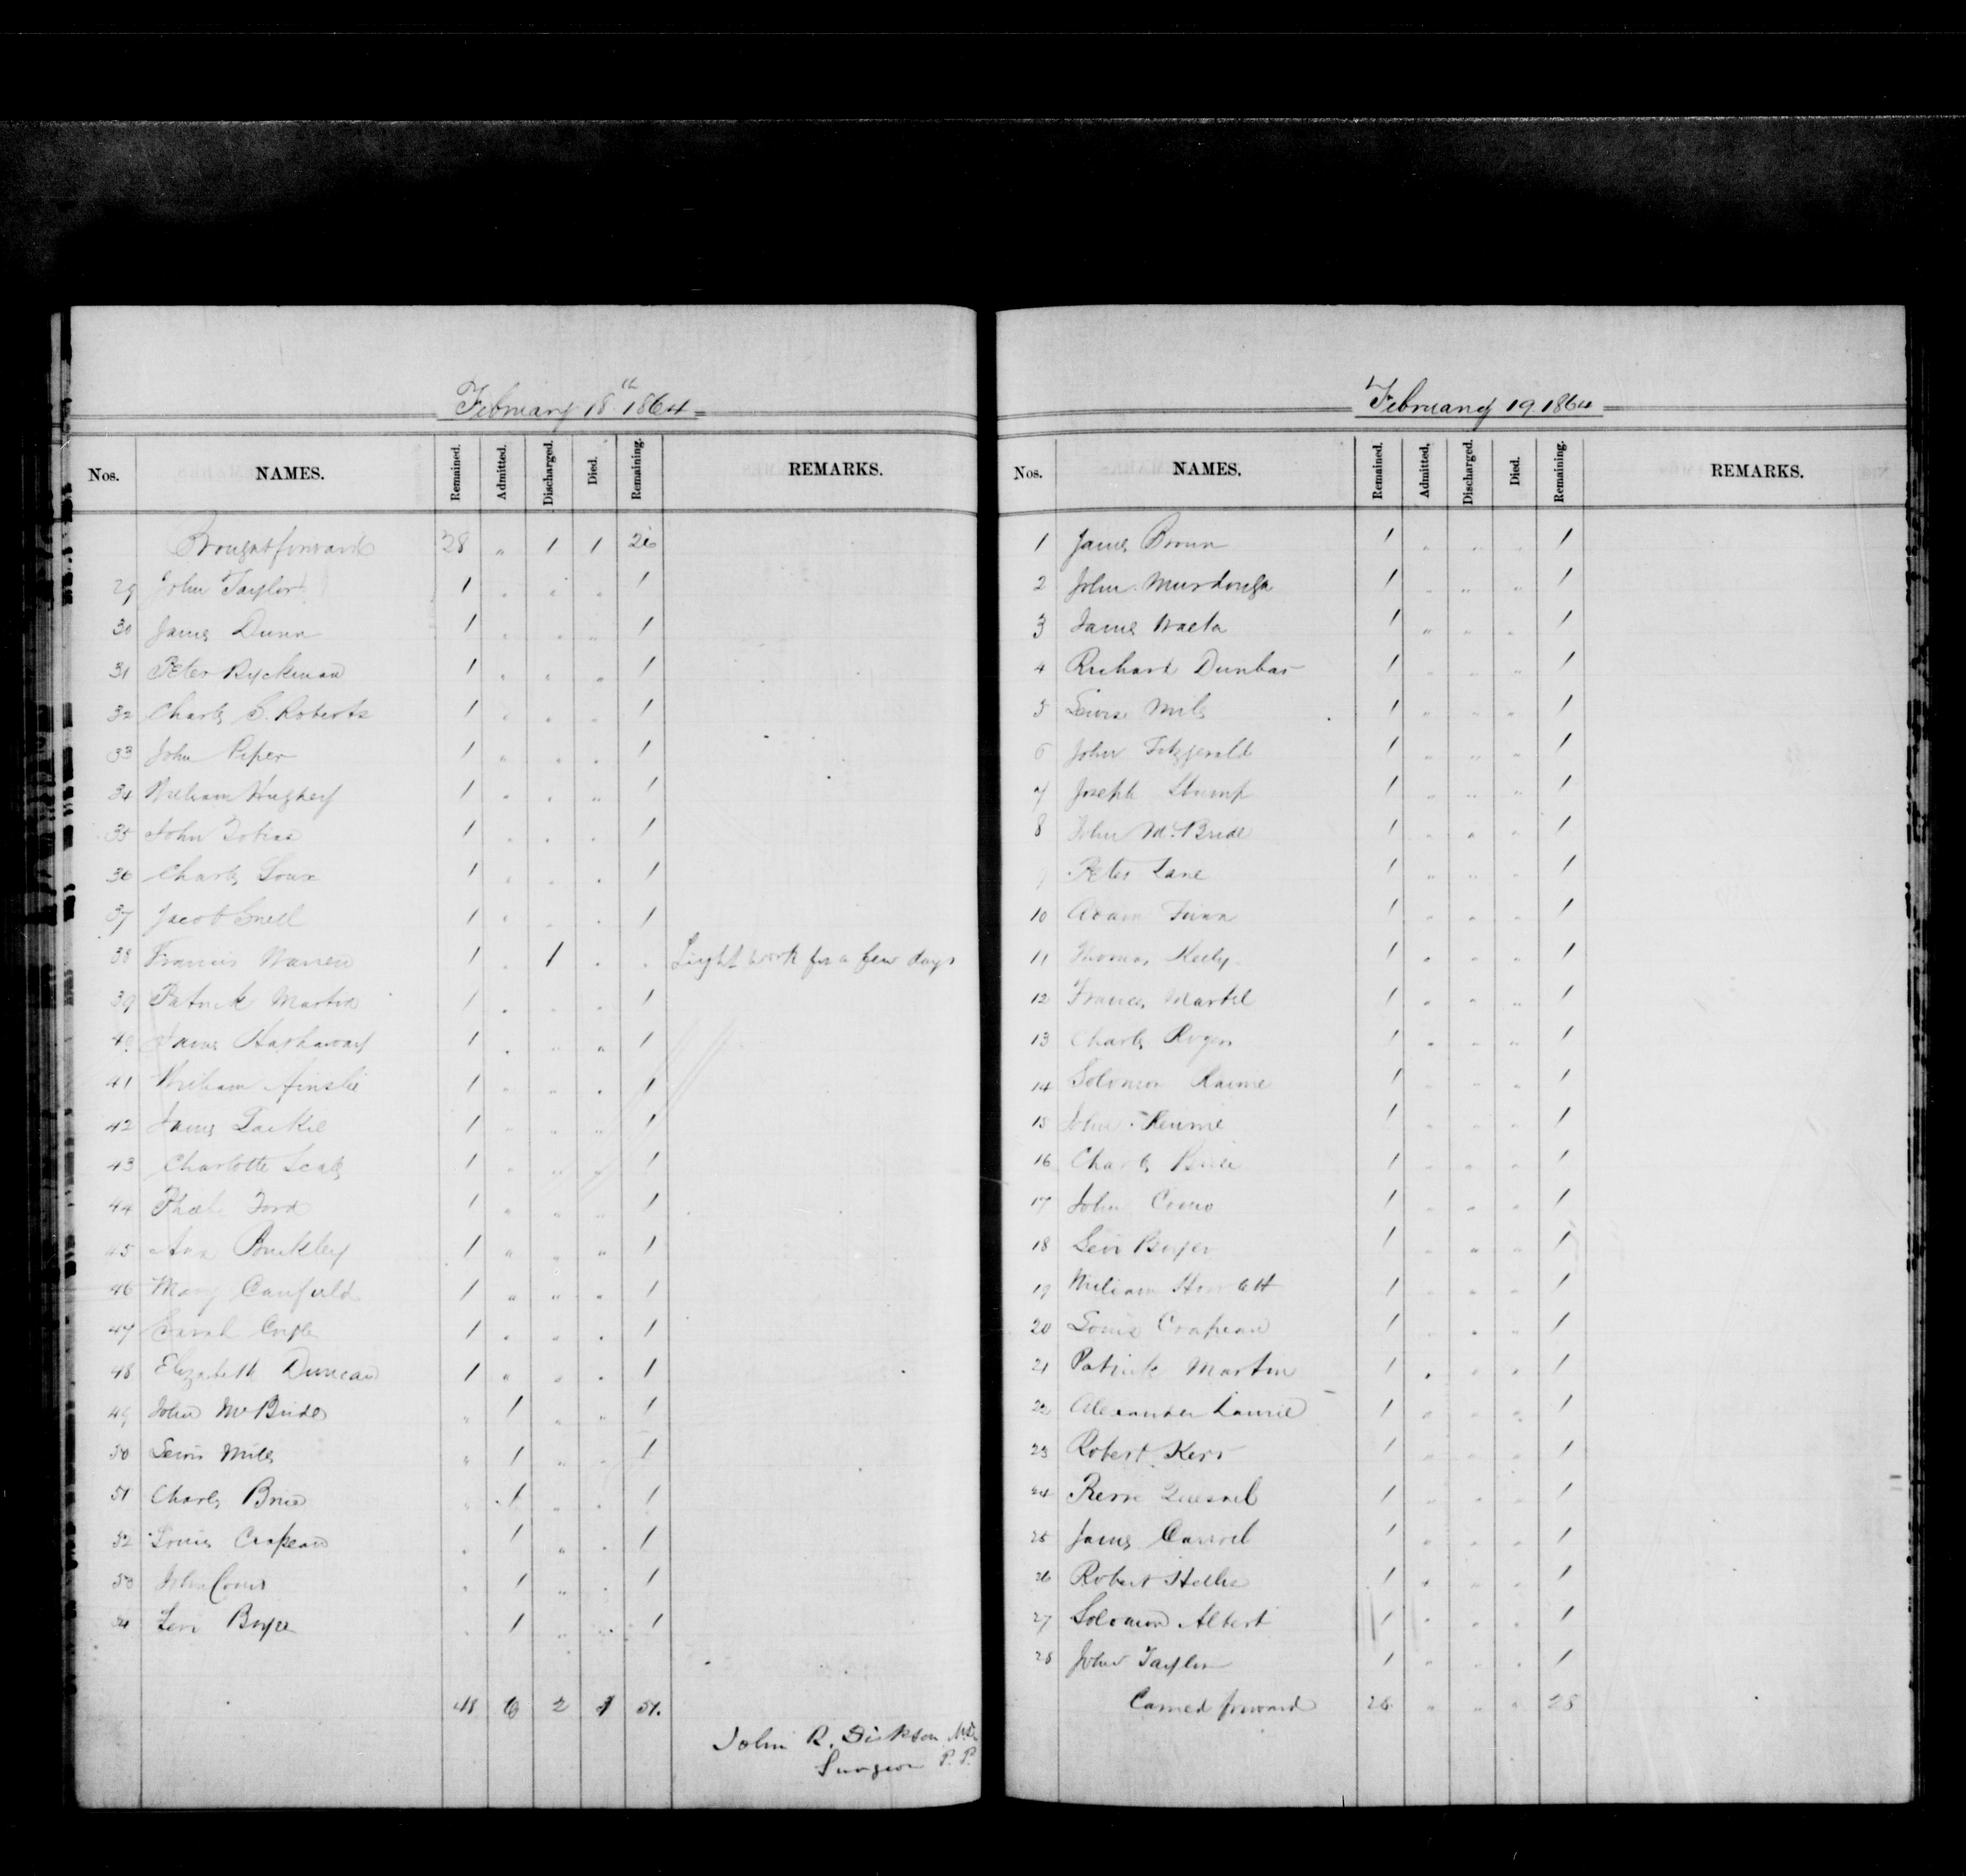 February 18th 1864
Nos. NAMES. Remained. Admitted. Discharged. Died. Remaining. REMARKS.
Brought forward 28 " 1 1 26
29 John Taylor 1 " " " 1
30 James Dunn 1 " " " 1
31 Peter Ryckman 1 " " " 1
32 Charles S. Roberts 1 " " " 1
33 John Piper 1 " " " 1
34 William 1 " " " 1
35 John 1 " " " 1
36 Charles 1 " " " 1
37 Jacob Snell 1 " " " 1
38 Francis Warren 1 " 1 " " Light work for a few days
39 Patrick Martin 1 " " " 1
40 James Hathaway 1 " " " 1
41 William Ainslie 1 " " " 1
42 James 1 " " " 1
43 Charlotte Scales 1 " " " 1
44 Phœbe Ford 1 " " " 1
45 Ann Buckley 1 " " " 1
46 Mary Canfield 1 " " " 1
47 Sarah 1 " " " 1
48 Elizabeth Duncan 1 " " " 1
49 John McBride " 1 " " 1
50 Lewis Miles " 1 " " 1
51 Charles Brice " 1 " " 1
52 Louis Crapeau " 1 " " 1
53 John " 1 " " 1
54 Levi Boyce " 1 " " 1
48 6 2 1 51.
John R. Dickson M.D.
Surgeon P. P.
February 19 1864
Nos. NAMES. Remained. Admitted. Discharged. Died. Remaining. REMARKS.
1 James Brown 1 " " " 1
2 John Murdough 1 " " " 1
3 James 1 " " " 1
4 Richard Dunbar 1 " " " 1
5 Lewis Miles 1 " " " 1
6 John Fitzgerald 1 " " " 1
7 Joseph Stump 1 " " " 1
8 John McBride 1 " " " 1
9 Peter Lane 1 " " " 1
10 Adam 1 " " " 1
11 Thomas Keely 1 " " " 1
12 Francis Martel 1 " " " 1
13 Charles Rogers 1 " " " 1
14 Solomon 1 " " " 1
15 John 1 " " " 1
16 Charles Brice 1 " " " 1
17 John 1 " " " 1
18 Levi Boyce 1 " " " 1
19 William Howlett 1 " " " 1
20 Louis Crapeau 1 " " " 1
21 Patrick Martin 1 " " " 1
22 Alexander Laurie 1 " " " 1
23 Robert Kerr 1 " " " 1
24 Pierre Quesnel 1 " " " 1
25 James Carroll 1 " " " 1
26 Robert 1 " " " 1
27 Solomon Albert 1 " " " 1
28 John Taylor 1 " " " 1
Carried forward 28 " " " 28